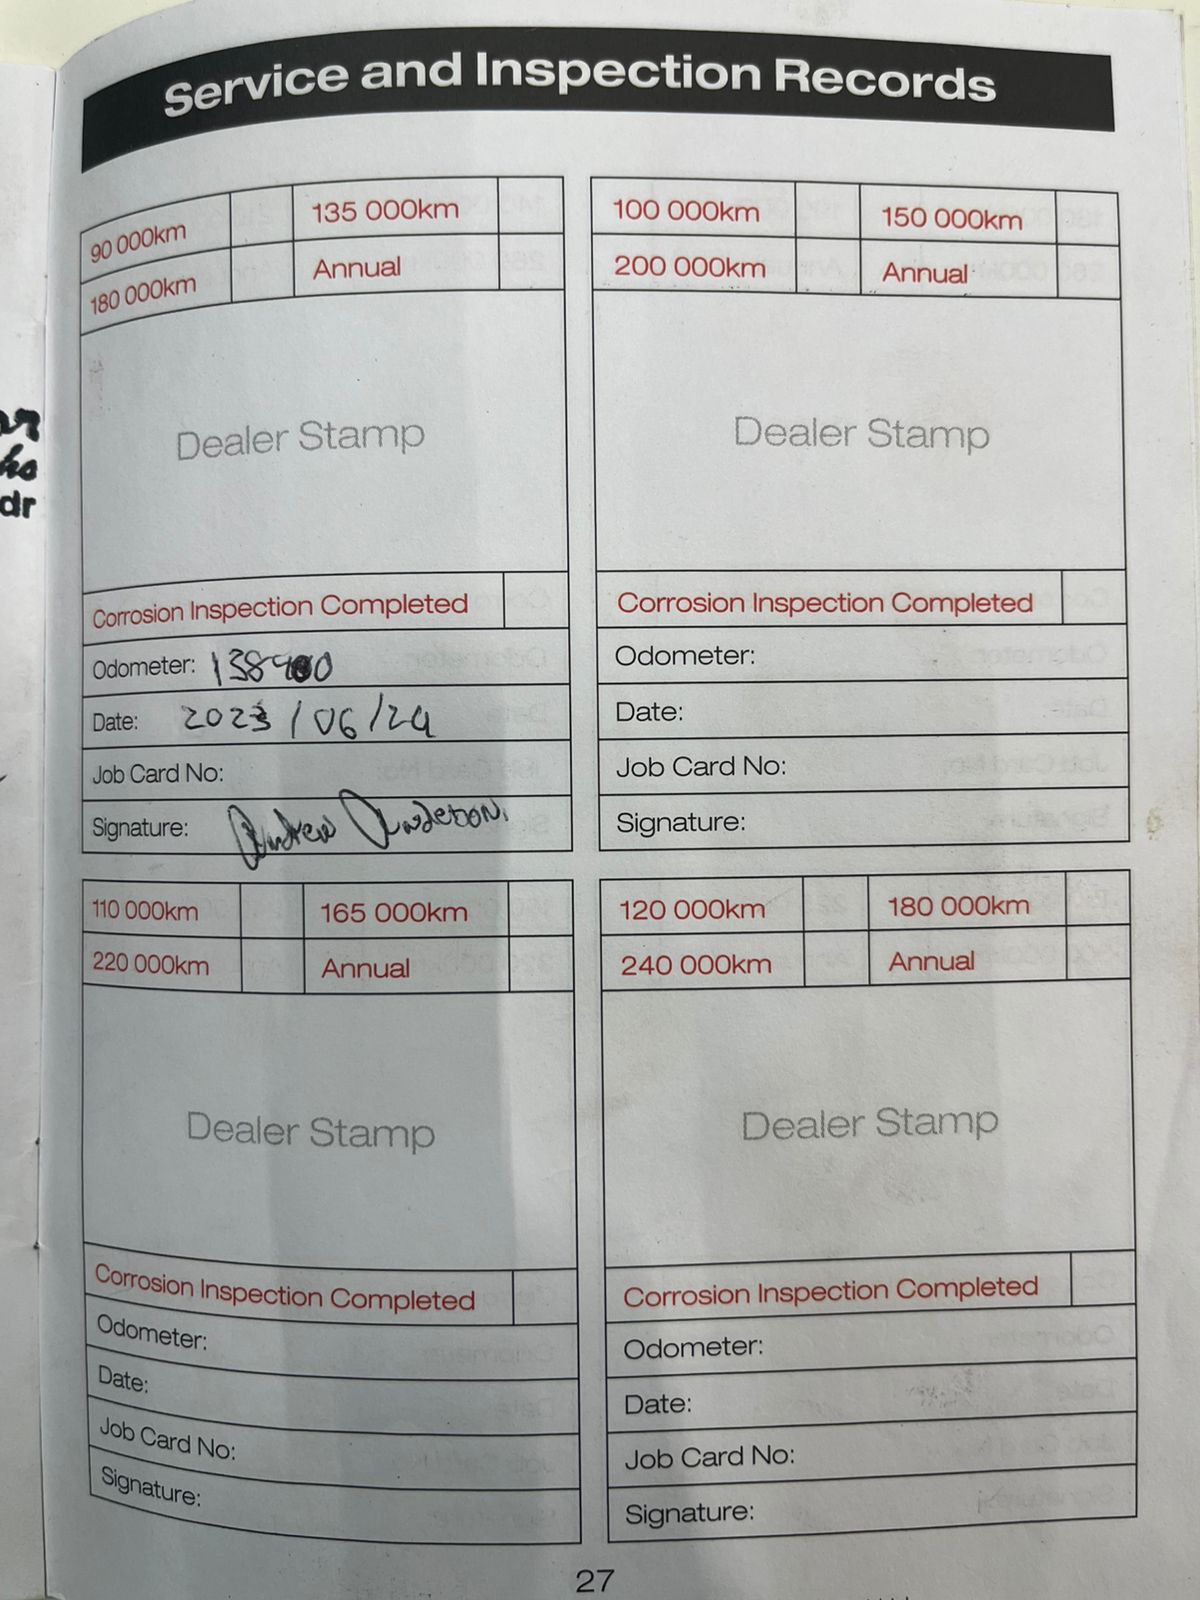 Service and Inspection Records
90 000km 135 000km
180 000km Annual
Dealer Stamp
Corrosion Inspection Completed
Odometer:
Date: 2023/06/24
Job Card No:
Signature: Andrew Anderson.
100 000km 150 000km
200 000km Annual
Dealer Stamp
Corrosion Inspection Completed
Odometer:
Date:
Job Card No:
Signature:
110 000km 165 000km
220 000km Annual
Dealer Stamp
Corrosion Inspection Completed
Odometer:
Date:
Job Card No:
Signature:
120 000km 180 000km
240 000km Annual
Dealer Stamp
Corrosion Inspection Completed
Odometer:
Date:
Job Card No:
Signature:
27
dr